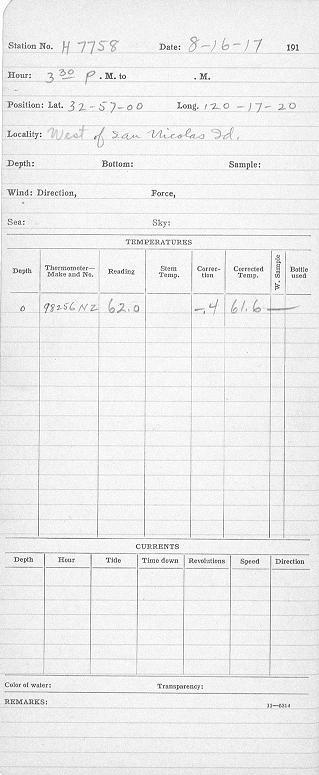 Station No. H 7758 Date: 8-16-17 191
Hour: 3 30 P. M. to . M.
Position: Lat. 32-57-00 Long. 120-17-20
Locality: West of San Nicolas Id.
Depth: Bottom: Sample:
Wind: Direction, Force,
Sea: Sky:
TEMPERATURES
Depth Thermometer—Make and No. Reading Stem Temp. Correction Corrected Temp. W. Sample Bottle used
0 98256 NZ 62.0 -.4 61.6 —
CURRENTS
Depth Hour Tide Time down Revolutions Speed Direction
Color of water: Transparency:
REMARKS: 11—6314